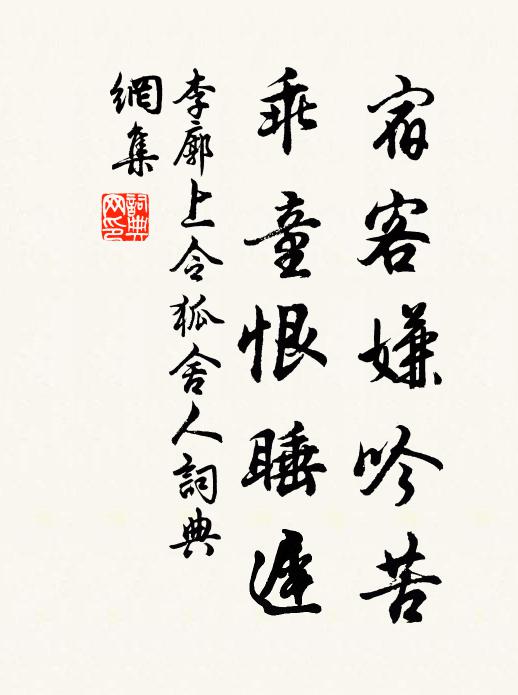 宿客嫌吟苦
乖童恨睡遲
李廓上令狐舍人詞典
網集
詞典網印